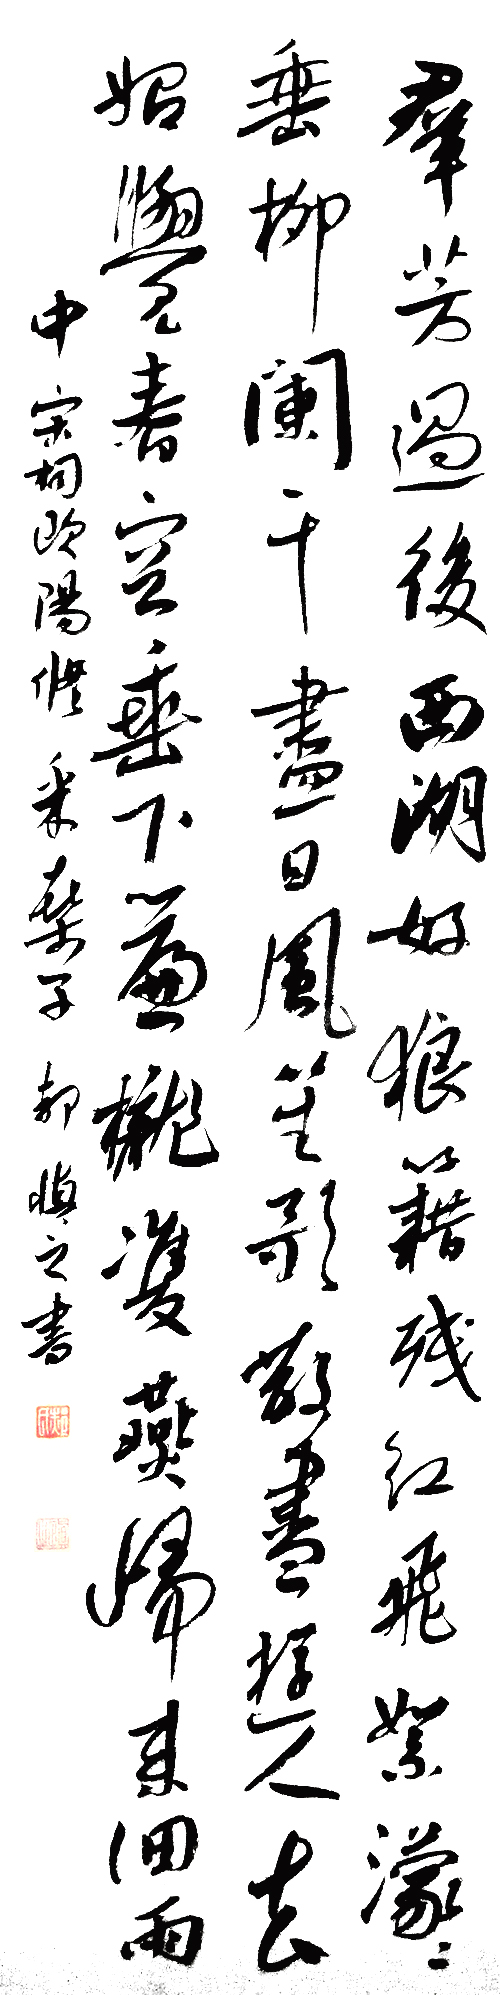 羣芳過後西湖好狼籍残红飛絮濛〻
垂柳闌干盡日風笙歌散盡遊人去
始覺春空垂下簾櫳雙燕歸來細雨
中 宋詞欧陽修采桑子 郝慎之書